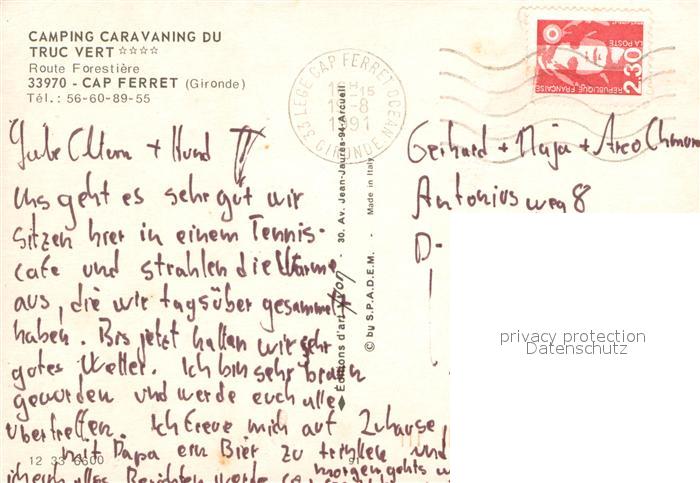 CAMPING CARAVANING DU
TRUC VERT ☆☆☆☆
Route Forestière
33970 - CAP FERRET (Gironde)
Tél.: 56-60-89-55
33 LEGE CAP FERRET OCEAN
16H15
8
1991
GIRONDE
LA POSTE
2,30
REPUBLIQUE FRANÇAISE
Liebe Eltern + Hund
Uns geht es sehr gut wir
sitzen hier in einem Tennis-
cafe und strahlen die Wärme
aus, die wir tagsüber gesammelt
haben. Bis jetzt hatten wir sehr
gutes Wetter. Ich bin sehr braun
geworden und werde euch alle
übertreffen. Ich freue mich auf Zuhause
mit Papa ein Bier zu trinken und
alles Berichten werde
morgen gehts
12 33 6600
91
Éditions d'art - 30. Av. Jean-Jaurès-94-Arcueil
© by S.P.A.D.E.M. - Made in Italy
Gerhard + Maja + Arco
Antoniusweg 8
D-
privacy protection
Datenschutz